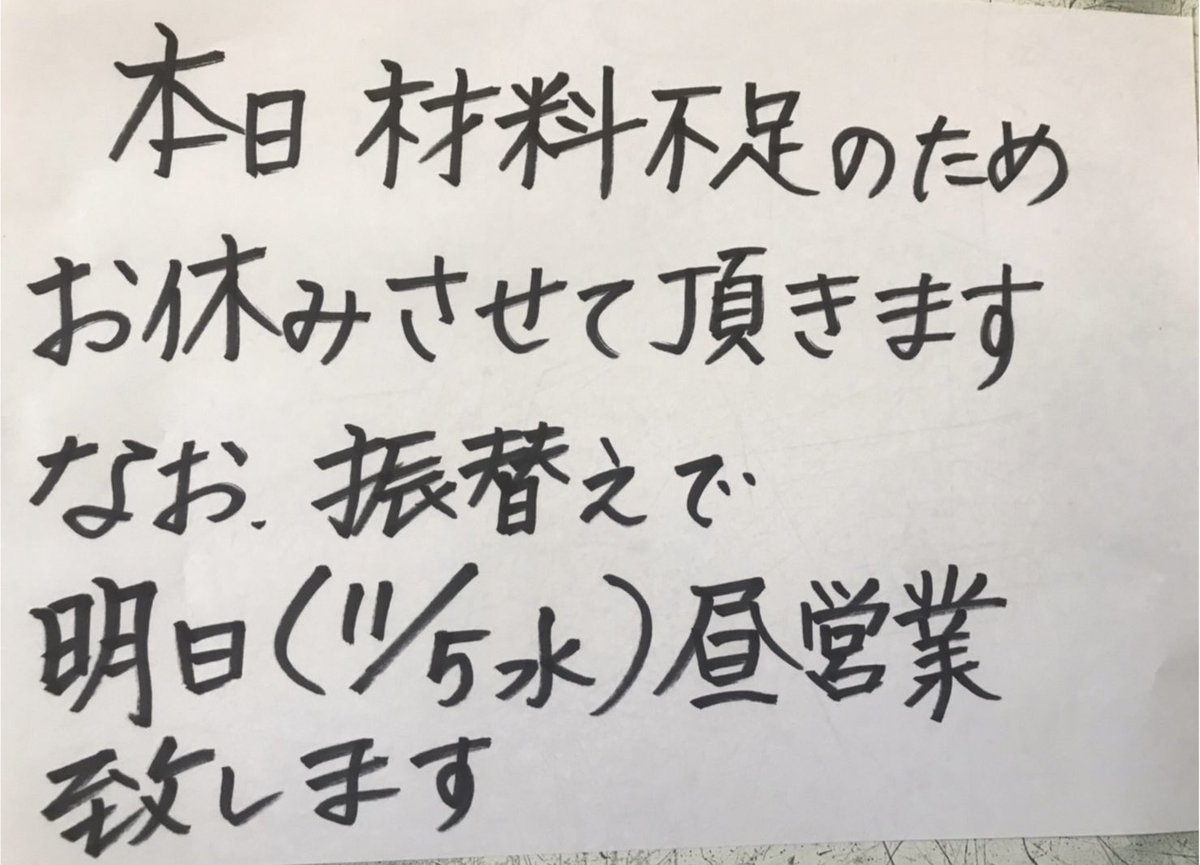 本日 材料不足のため
お休みさせて頂きます
なお、振替えで
明日(11/5水)昼営業
致します